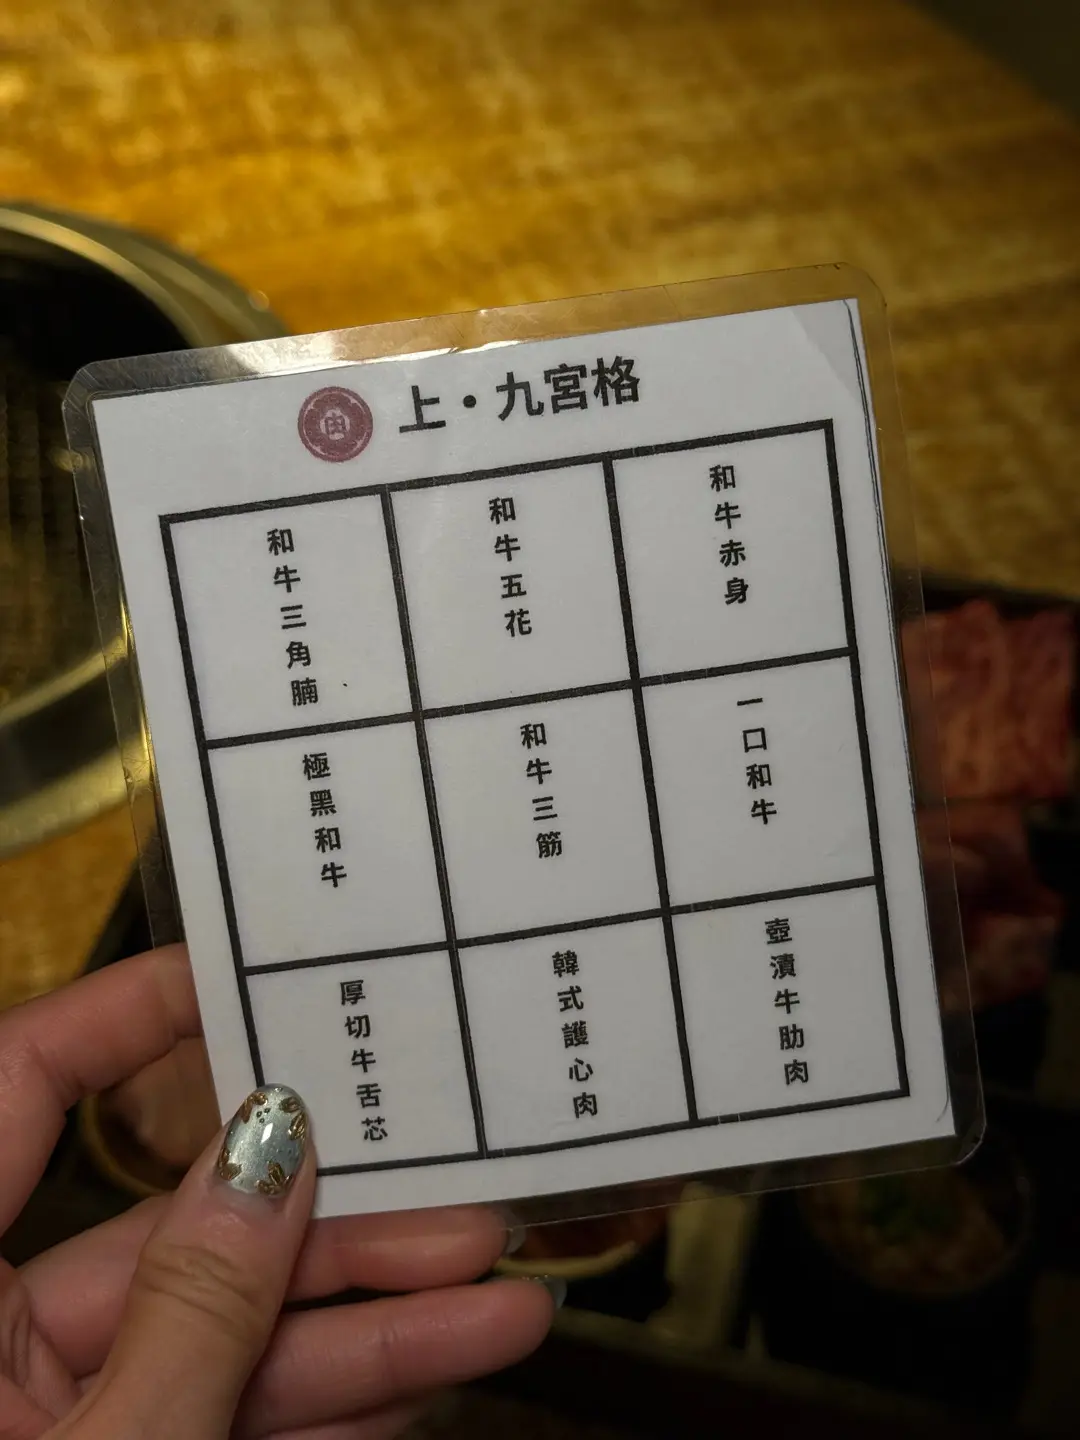 肉
上・九宮格
和牛三角腩
和牛五花
和牛赤身
極黑和牛
和牛三筋
一口和牛
厚切牛舌芯
韓式護心肉
壺漬牛肋肉